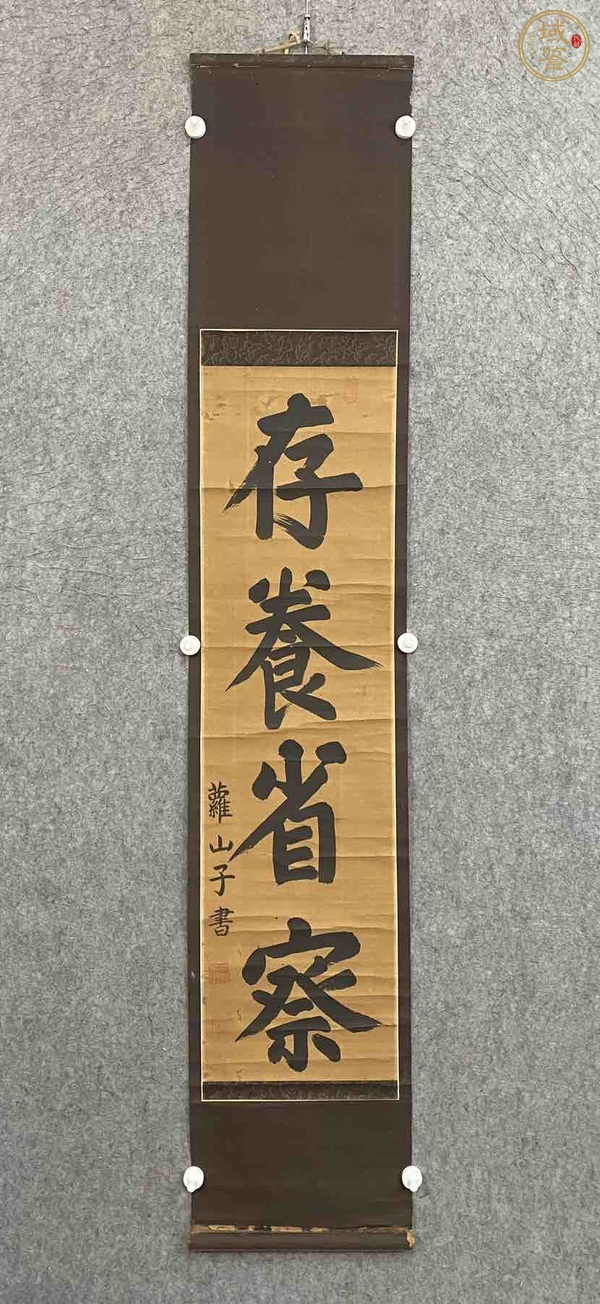 存養省察
蘿山子書
域鉴